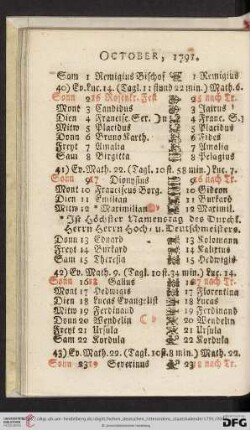 OCTOBER, 1791.
Sam 1 Remigius Bischof 1 Remigius
40) Ev. Luc. 14. (Tagl. 11 stund 22 min.) Math. 6.
Sonn 2 16 Rosenkr. Fest 2 15 nach Tr.
Mont 3 Candidus 3 Jairus
Dien 4 Francisc. Ser. 4 Franc. S.
Mitw 5 Placidus 5 Placidus
Donn 6 Bruno Karth. 6 Fides
Freyt 7 Amalia 7 Amalia
Sam 8 Birgitta 8 Pelagius
41) Ev. Math. 22. (Tagl. 10 st. 58 min.) Luc. 7.
Sonn 9 17 Dionysius 9 16 nach Tr.
Mont 10 Franciscus Borg. 10 Gideon
Dien 11 Emilian 11 Burkard
Mitw 12 * Maximilian 12 Maximil.
* Ist Höchster Namenstag des Durchl.
Herrn Herrn Hoch- u. Deutschmeisters.
Donn 13 Eduard 13 Kolomann
Freyt 14 Burkard 14 Kalixtus
Sam 15 Theresia 15 Hedwigis
42) Ev. Math. 9. (Tagl. 10 st. 34 min.) Luc. 14.
Sonn 16 18 Gallus 16 17 nach Tr.
Mont 17 Hedwigis 17 Florentina
Dien 18 Lucas Evangelist 18 Lucas
Mitw 19 Ferdinand 19 Ferdinand
Donn 20 Wendelin 20 Wendelin
Freyt 21 Ursula 21 Ursula
Sam 22 Kordula 22 Kordula
43) Ev. Math. 22. (Tagl. 10 st. 8 min.) Math. 22.
Sonn 23 19 Severinus 23 18 nach Tr.